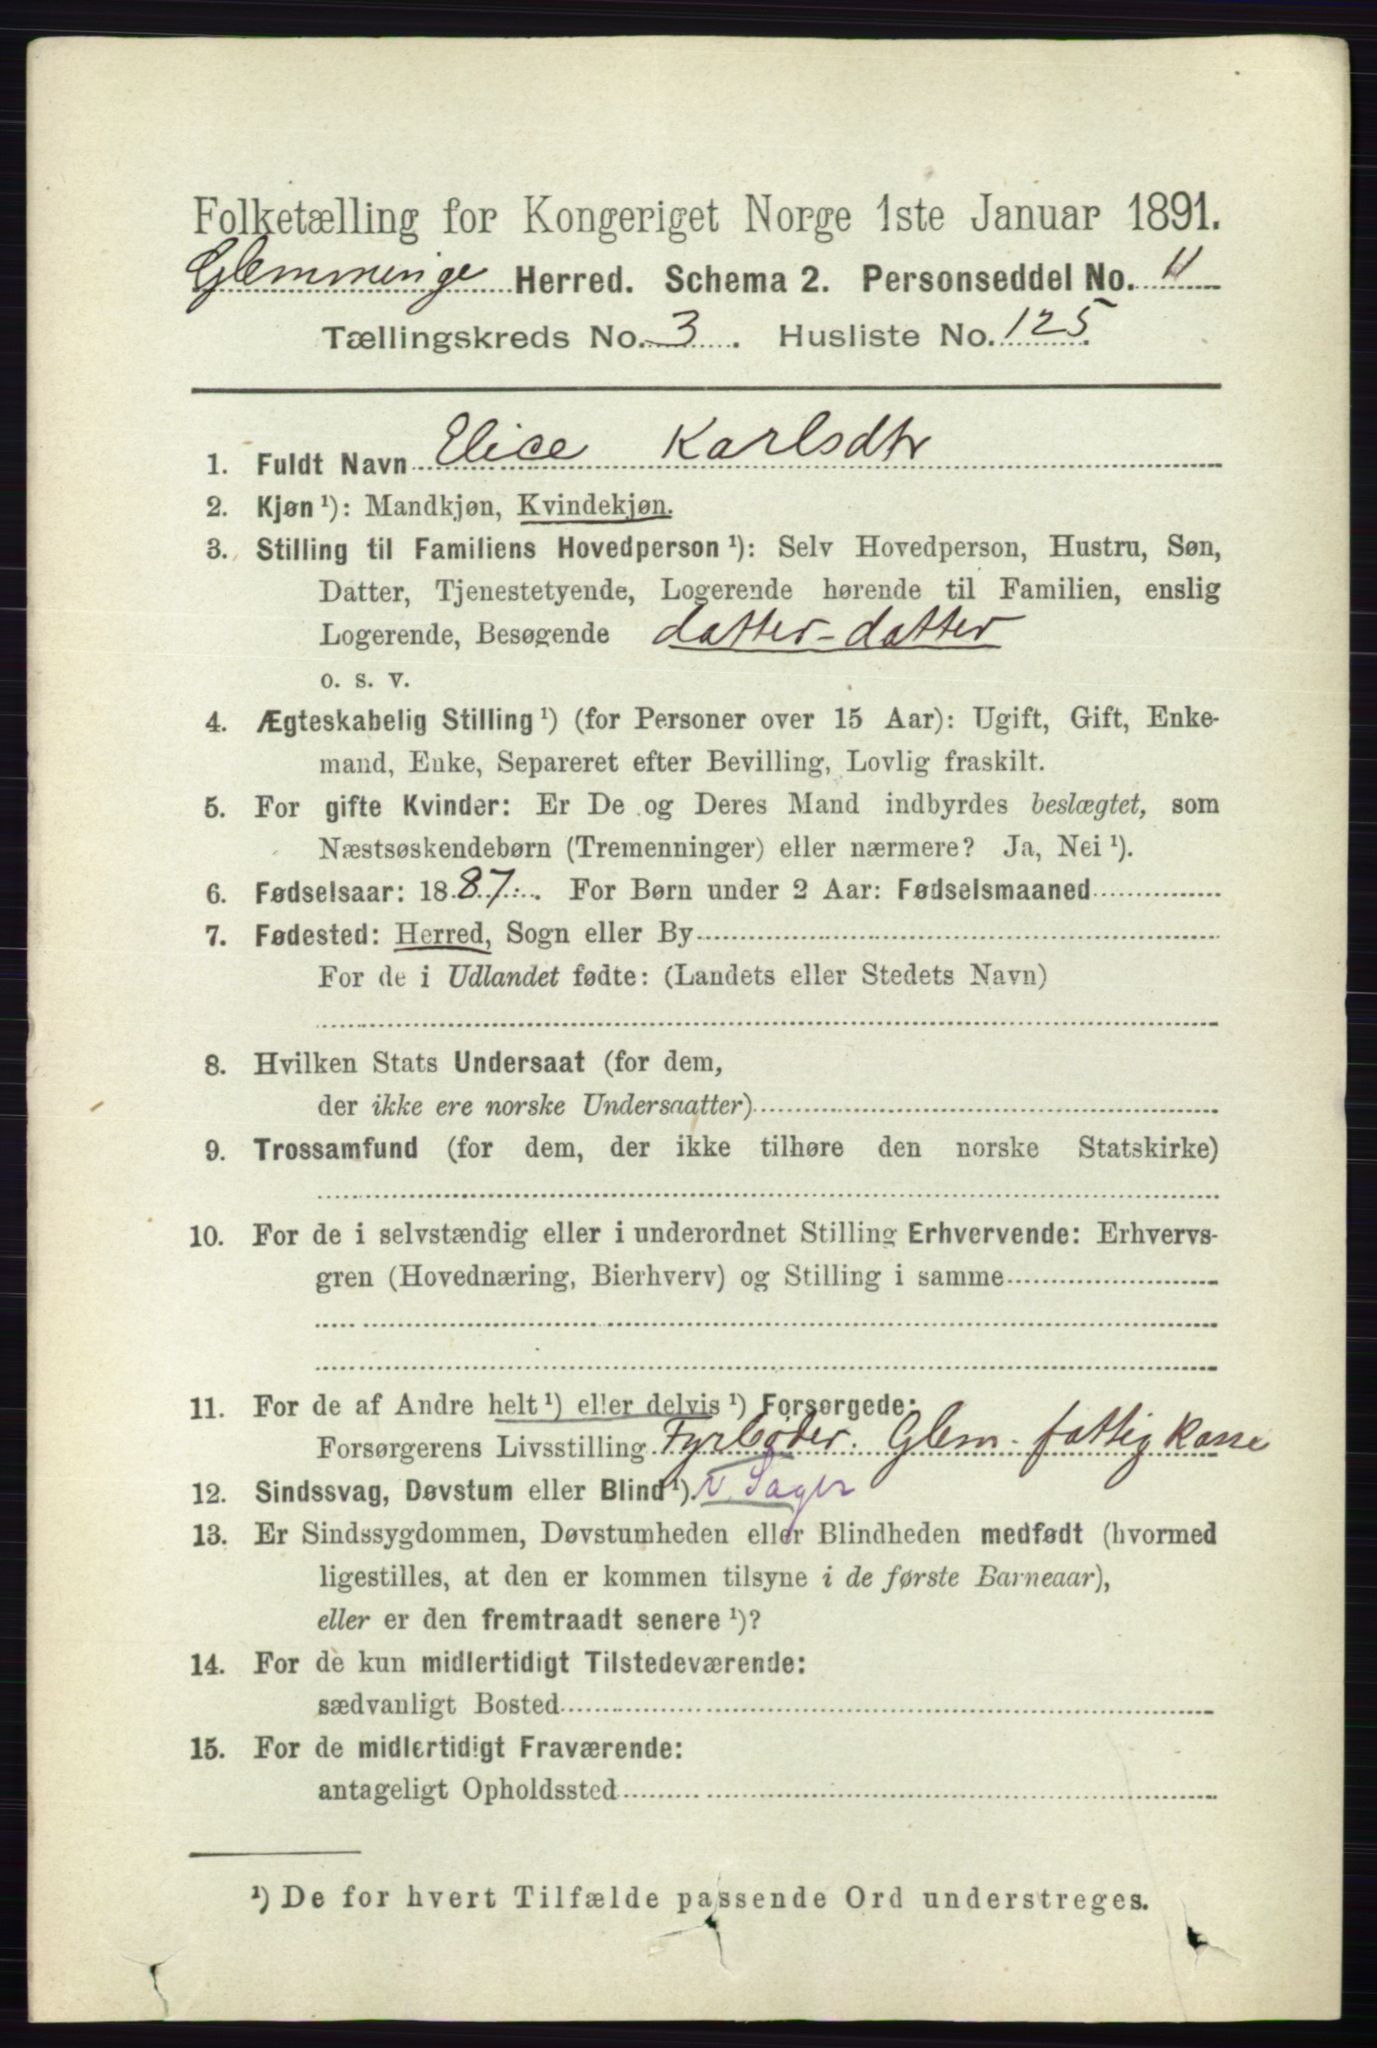 Folketælling for Kongeriget Norge 1ste Januar 1891.
Glemminge Herred. Schema 2. Personseddel No. 4
Tællingskreds No. 3. Husliste No. 125.
1. Fuldt Navn Elice Karlsdtr
2. Kjøn ¹): Mandkjøn, Kvindekjøn.
3. Stilling til Familiens Hovedperson ¹): Selv Hovedperson, Hustru, Søn,
Datter, Tjenestetyende, Logerende hørende til Familien, enslig
Logerende, Besøgende datter-datter
o. s. v.
4. Ægteskabelig Stilling ¹) (for Personer over 15 Aar): Ugift, Gift, Enke-
mand, Enke, Separeret efter Bevilling, Lovlig fraskilt.
5. For gifte Kvinder: Er De og Deres Mand indbyrdes beslægtet, som
Næstsøskendebørn (Tremenninger) eller nærmere? Ja, Nei ¹).
6. Fødselsaar: 1887. For Børn under 2 Aar: Fødselsmaaned
7. Fødested: Herred, Sogn eller By
For de i Udlandet fødte: (Landets eller Stedets Navn)
8. Hvilken Stats Undersaat (for dem,
der ikke ere norske Undersaatter)
9. Trossamfund (for dem, der ikke tilhøre den norske Statskirke)
10. For de i selvstændig eller i underordnet Stilling Erhvervende: Erhvervs-
gren (Hovednæring, Bierhverv) og Stilling i samme
11. For de af Andre helt ¹) eller delvis ¹) Forsørgede:
Forsørgerens Livsstilling Fyrbøder. Glem. fattigkasse
12. Sindssvag, Døvstum eller Blind ¹). v Sager
13. Er Sindssygdommen, Døvstumheden eller Blindheden medfødt (hvormed
ligestilles, at den er kommen tilsyne i de første Barneaar),
eller er den fremtraadt senere ¹)?
14. For de kun midlertidigt Tilstedeværende:
sædvanligt Bosted
15. For de midlertidigt Fraværende:
antageligt Opholdssted
¹) De for hvert Tilfælde passende Ord understreges.